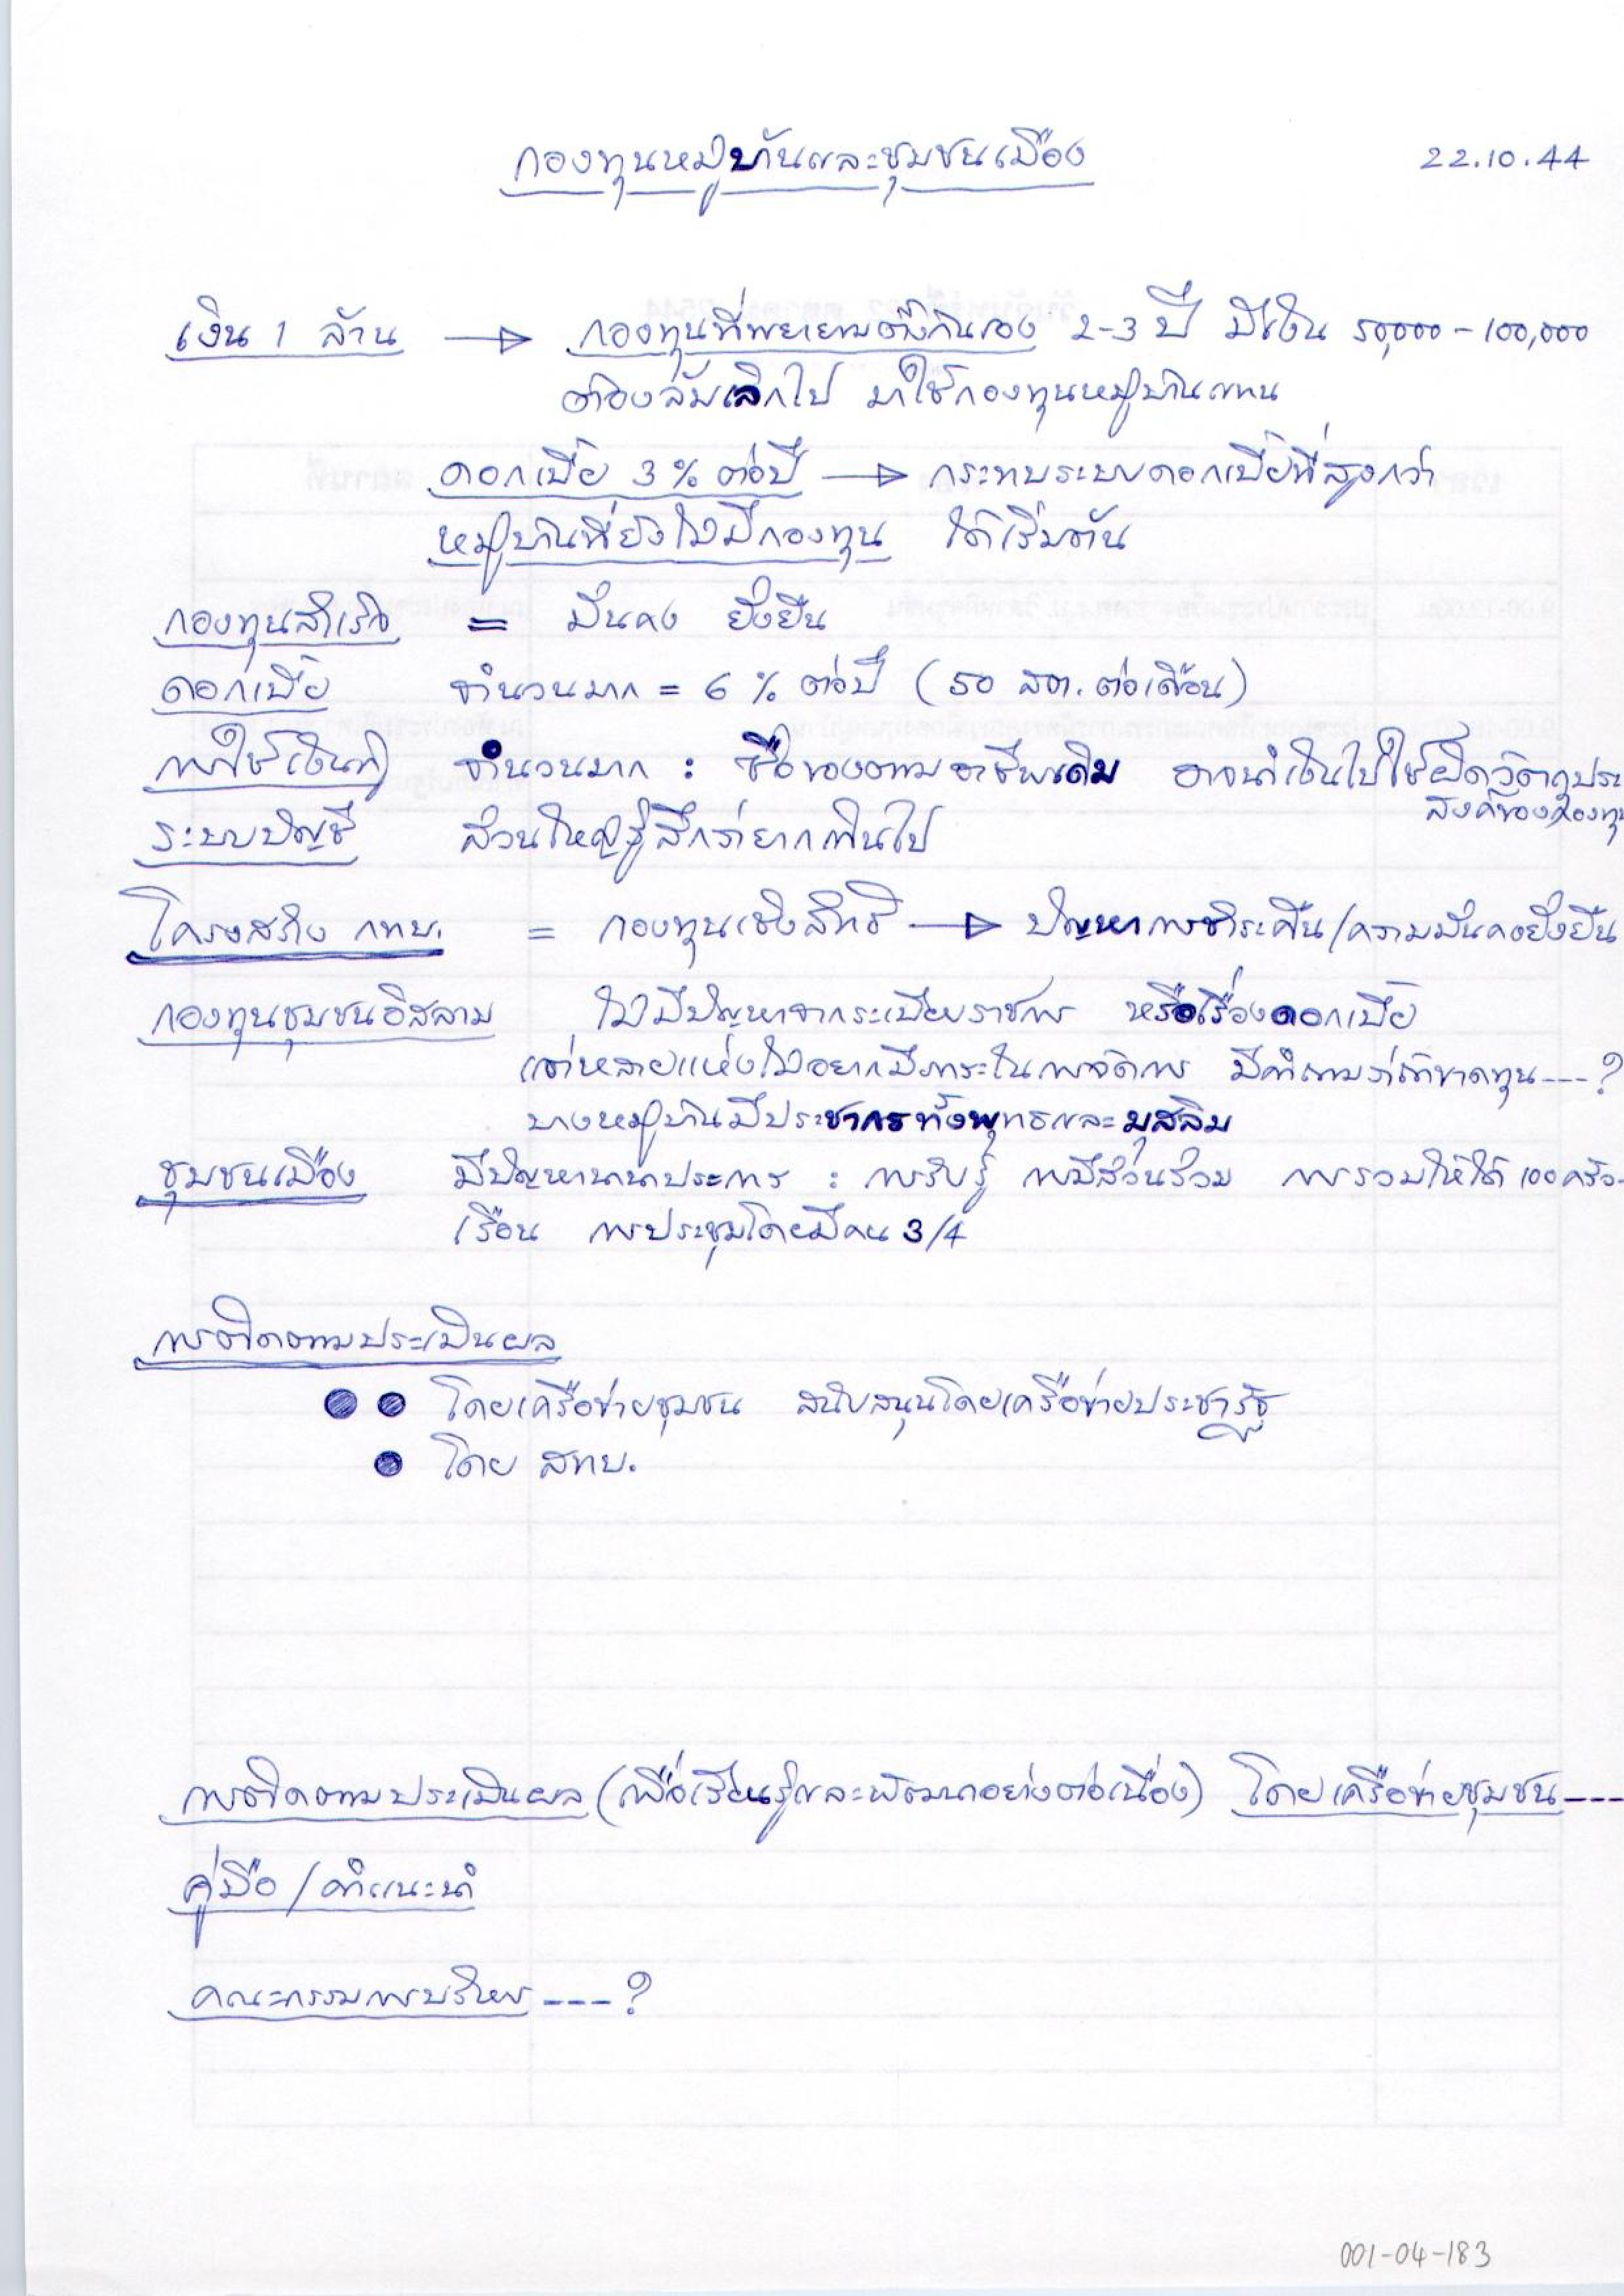 กองทุนหมู่บ้านและชุมชนเมือง 22.10.44
เงิน 1 ล้าน → กองทุนที่พยายามตั้งกันเอง 2-3 ปี มีเงิน 50,000 - 100,000
ต้องล้มเลิกไป มาใช้กองทุนหมู่บ้านแทน
ดอกเบี้ย 3% ต่อปี → กระทบระบบดอกเบี้ยที่สูงกว่า
หมู่บ้านที่ยังไม่มีกองทุน ได้เริ่มต้น
กองทุนสำเร็จ = มั่นคง ยั่งยืน
ดอกเบี้ย จำนวนมาก = 6 % ต่อปี (50 สต. ต่อเดือน)
การใช้เงินกู้ จำนวนมาก : ซื้อของตามอาชีพเดิม อาจนำเงินไปใช้ผิดวัตถุประ
สงค์ของกองทุน
ระบบบัญชี ส่วนใหญ่รู้สึกว่ายากเกินไป
โครงสร้าง กทบ. = กองทุนเชิงสิทธิ → ปัญหาการชำระคืน/ความมั่นคงยั่งยืน
กองทุนชุมชนอิสลาม ไม่มีปัญหาจากระเบียบราชการ หรือเรื่องดอกเบี้ย
แต่หลายแห่งไม่อยากมีภาระในการจัดการ มีคำถามว่าถ้าขาดทุน----?
บางหมู่บ้านมีประชากรทั้งพุทธและมุสลิม
ชุมชนเมือง มีปัญหานานาประการ : การรับรู้ การมีส่วนร่วม การรวมให้ได้ 100 ครัว-
เรือน การประชุมโดยมีคน 3/4
การติดตามประเมินผล
●● โดยเครือข่ายชุมชน สนับสนุนโดยเครือข่ายประชารัฐ
● โดย สทบ.
การติดตามประเมินผล (เพื่อเรียนรู้และพัฒนาอย่างต่อเนื่อง) โดยเครือข่ายชุมชน----
คู่มือ / คำแนะนำ
คณะกรรมการบริหาร ----?
001-04-183